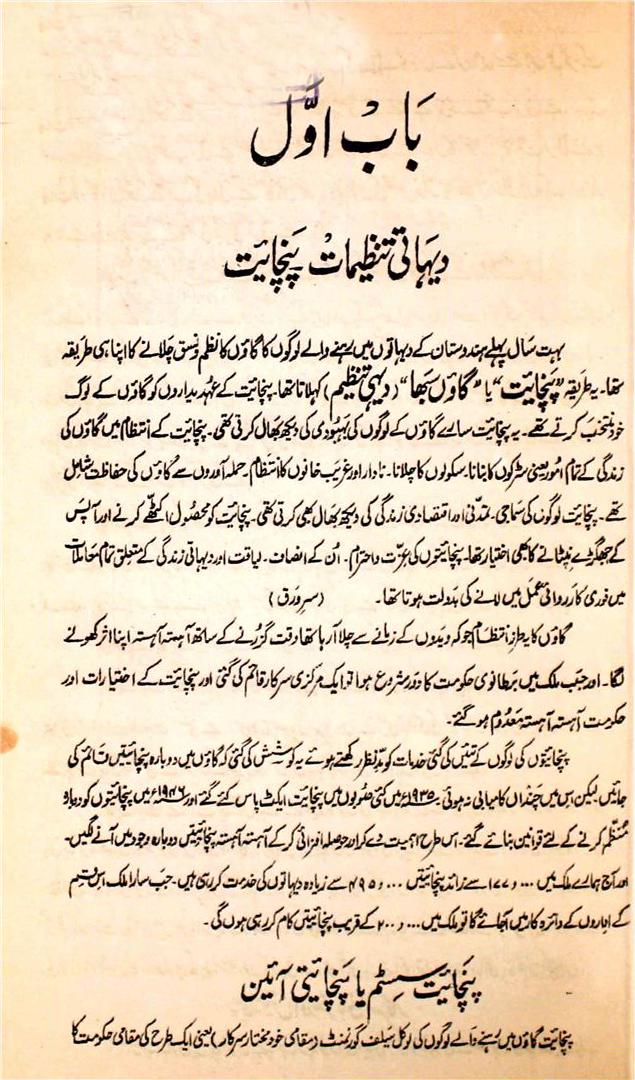 بَابْ اوّل
دیہاتی تنظیمات۔ پَنچائیت
بہت سال پہلے ہندوستان کے دیہاتوں میں رہنے والے لوگوں کا گاؤں کا نظم و نسق چلانے کا اپنا ہی طریقہ
تھا۔ یہ طریقہ "پنچائیت" یا "گاؤں سبھا" (دیہی تنظیم) کہلاتا تھا۔ پنچائیت کے عہدیداروں کو گاؤں کے لوگ
خود منتخب کرتے تھے۔ یہ پنچائیت سارے گاؤں کے لوگوں کی بہبودی کی دیکھ بھال کرتی تھی۔ پنچائیت کے انتظام میں گاؤں کی
زندگی کے تمام امور یعنی سڑکوں کا بنانا۔ سکولوں کا چلانا۔ نادار اور غریب خانوں کا انتظام۔ حملہ آوروں سے گاؤں کی حفاظت شامل
تھے۔ پنچائیت لوگوں کی سماجی۔ تمدنی اور اقتصادی زندگی کی دیکھ بھال بھی کرتی تھی۔ پنچائیت کو محصول اکٹھے کرنے اور آپس
کے جھگڑے نپٹانے کا بھی اختیار تھا۔ پنچائیتوں کی عزت و احترام۔ اُن کے انصاف۔ لیاقت اور دیہاتی زندگی کے متعلق تمام معاملات
میں فوری کارروائی عمل میں لانے کی بدولت ہوتا تھا۔ (سرورق)
گاؤں کا یہ طرز انتظام جو کہ ویدوں کے زمانے سے چلا آ رہا تھا وقت گزرنے کے ساتھ آہستہ آہستہ اپنا اثر کھونے
لگا۔ اور جب ملک میں برطانوی حکومت کا دور شروع ہوا تو ایک مرکزی سرکار قائم کی گئی اور پنچائیت کے اختیارات اور
حکومت آہستہ آہستہ معدوم ہو گئے۔
پنچائیتوں کی لوگوں کے تئیں کی گئی خدمات کو مدِنظر رکھتے ہوئے یہ کوشش کی گئی کہ گاؤں میں دوبارہ پنچائیتیں قائم کی
جائیں۔ لیکن اس میں چنداں کامیابی نہ ہوئی۔ ۱۹۳۵ء میں کئی صوبوں میں پنچایت ایکٹ پاس کئے گئے اور ۱۹۴۶ء میں پنچائیتوں کو دوبارہ
منظم کرنے کے لئے قوانین بنائے گئے۔ اس طرح اہمیت دے کر اور حوصلہ افزائی کر کے آہستہ آہستہ پنچائیتیں دوبارہ وجود میں آنے لگیں۔
اور آج ہمارے ملک میں ۱۷۷۰۰۰ سے زائد پنچائیتیں ۴۹۵۰۰۰ سے زیادہ دیہاتوں کی خدمت کر رہی ہیں۔ جب سارا ملک اس قسم
کے اداروں کے دائرہ کار میں آ جائے گا تو ملک میں ۲۰۰۰۰۰ کے قریب پنچائیتیں کام کر رہی ہوں گی۔
پنچائیت سسٹم یا پنچائیتی آئین
پنچائیت گاؤں میں رہنے والے لوگوں کی لوکل سیلف گورنمنٹ (مقامی خود مختار سرکار) یعنی ایک طرح کی مقامی حکومت کا